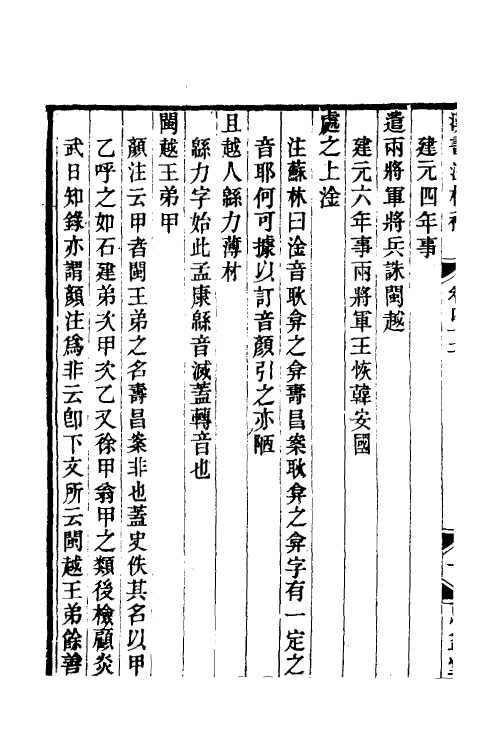 建元四年事
遣兩將軍將兵誅閩越
建元六年事兩將軍王恢韓安國
處之上淦
注蘇林曰淦音耿弇之弇壽昌案耿弇之弇字有一定之
音耶何可據以訂音顏引之亦陋
且越人緜力薄材
緜力字始此孟康緜音滅蓋轉音也
閩越王弟甲
顏注云甲者閩王弟之名壽昌案非也蓋史佚其名以甲
乙呼之如石建弟次甲次乙又徐甲翁甲之類後檢顧炎
武日知錄亦謂顏注爲非云卽下文所云閩越王弟餘善